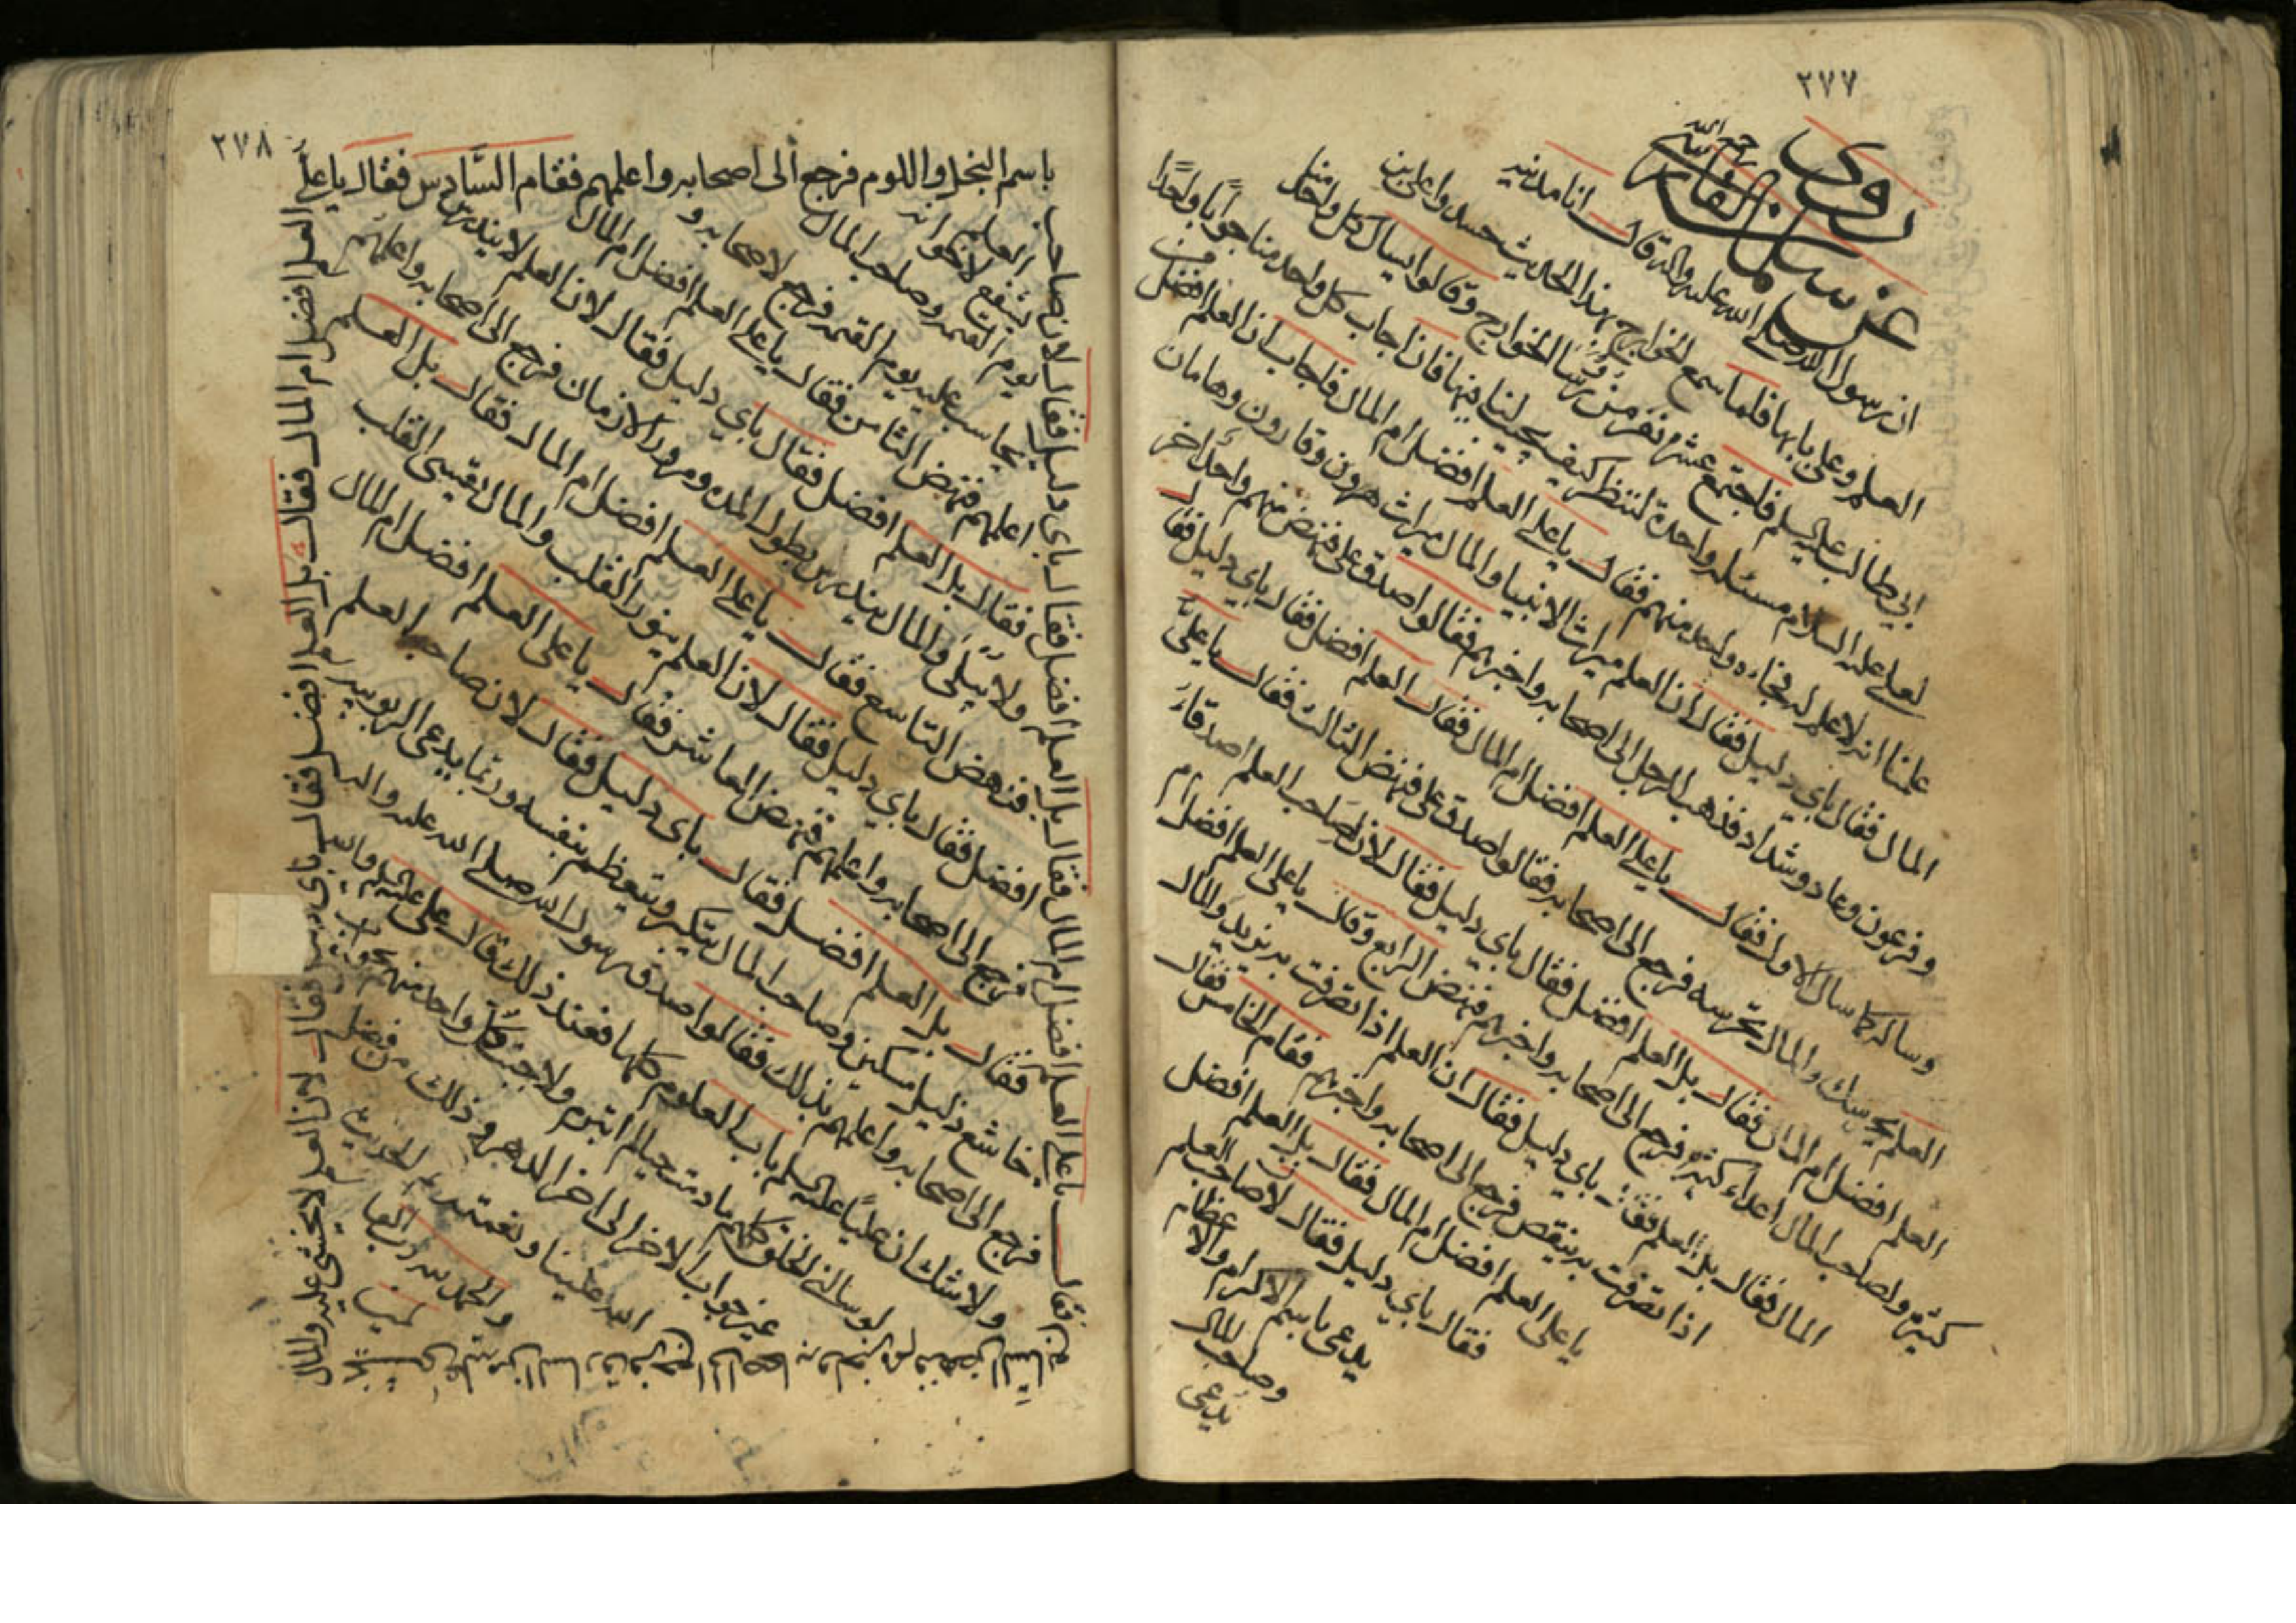 ٢٧٧
روى
عن سلمان الفارسي رحمه الله
ان رسول الله صلى الله عليه واله قال انا مدينة
العلم وعلي بابها فلما سمع الخوارج بهذا الحديث حسدوا علي بن
ابي طالب عليه السلام فاجتمع عشرة نفر من رؤسا الخوارج وقالوا يسال كل واحد منا
لعلي عليه السلام مسئلة واحدة لننظر كيف يجيبنا فيها فان اجاب كل واحد منا جوابا واحدا
علمنا انه لا علم له فجاءه واحد منهم فقال يا علي العلم افضل ام المال فاجاب ان العلم افضل من
المال فقال باي دليل فقال لان العلم ميراث الانبيا والمال ميراث هرون وقارون وهامان
وفرعون وعاد وشداد فذهب الرجل الى اصحابه واخبرهم فقالوا صدق علي فنهض منهم واحدا اخر
وساله كما سال الاول فقال يا علي العلم افضل ام المال فقال العلم افضل فقال باي دليل فقال
العلم يحرسك والمال تحرسه فرجع الى اصحابه فقالوا صدق علي فنهض الثالث فقال يا علي
العلم افضل ام المال فقال بل العلم افضل فقال باي دليل فقال لان لصاحب العلم اصدقاء
كثيرة ولصاحب المال اعداء كثيرة فرجع الى اصحابه واخبرهم فنهض الرابع وقال يا علي العلم افضل ام
المال فقال بل العلم فقال باي دليل فقال ان العلم اذا تصرفت به يزيد والمال
اذا تصرفت به ينقص فرجع الى اصحابه واخبرهم فقام الخامس فقال
يا علي العلم افضل ام المال فقال بل العلم افضل
فقال باي دليل فقال لان صاحب العلم
يدعى باسم الاكرام والاعظام
وصاحب المال
يدعى
٢٧٨
باسم البخل واللوم فرجع الى اصحابه واعلمهم فقام السادس فقال يا علي
العلم افضل ام المال فقال بل العلم افضل فقال باي دليل فقال لان العلم لا يخشى عليه والمال
يخشى عليه من السارق فرجع الى اصحابه واخبرهم فنهض السابع
فقال يا علي العلم افضل ام المال فقال بل العلم افضل فقال باي دليل فقال لان صاحب
العلم
يشفع لاخوانه
يوم القيمة وصاحب المال
يحاسب عليه يوم القيمة فرجع لاصحابه و
اعلمهم فنهض الثامن فقال يا علي العلم افضل ام المال
فقال بل العلم افضل فقال باي دليل فقال لان العلم لا يندرس
ولا يبلى والمال يندرس بطول المدة ومرور الازمان فرجع الى اصحابه واعلمهم
فنهض التاسع فقال يا علي العلم افضل ام المال فقال بل العلم
افضل فقال باي دليل فقال لان العلم ينور القلب والمال يقسي القلب
فرجع الى اصحابه واعلمهم فنهض العاشر فقال يا علي العلم افضل ام المال
فقال بل العلم افضل فقال باي دليل فقال لان صاحب العلم
خاشع ذليل مسكين وصاحب المال يتكبر ويتعظم بنفسه وربما يدعي الربوبية
فرجع الى اصحابه واعلمهم بذلك فقالوا صدق رسول الله صلى الله عليه واله
ولا شك ان عليا عليه السلم باب العلوم كلها فعند ذلك قال علي عليه السلم والله
لو سالني الخلق كلهم ما دمت حيا لم اتبرم ولاجبت كل واحد منهم بجواب
غير جواب الاخر الى اخر الدهر وذلك من فضل
الله علينا ونعمته الحديث
والحمد لله رب العا
لمين